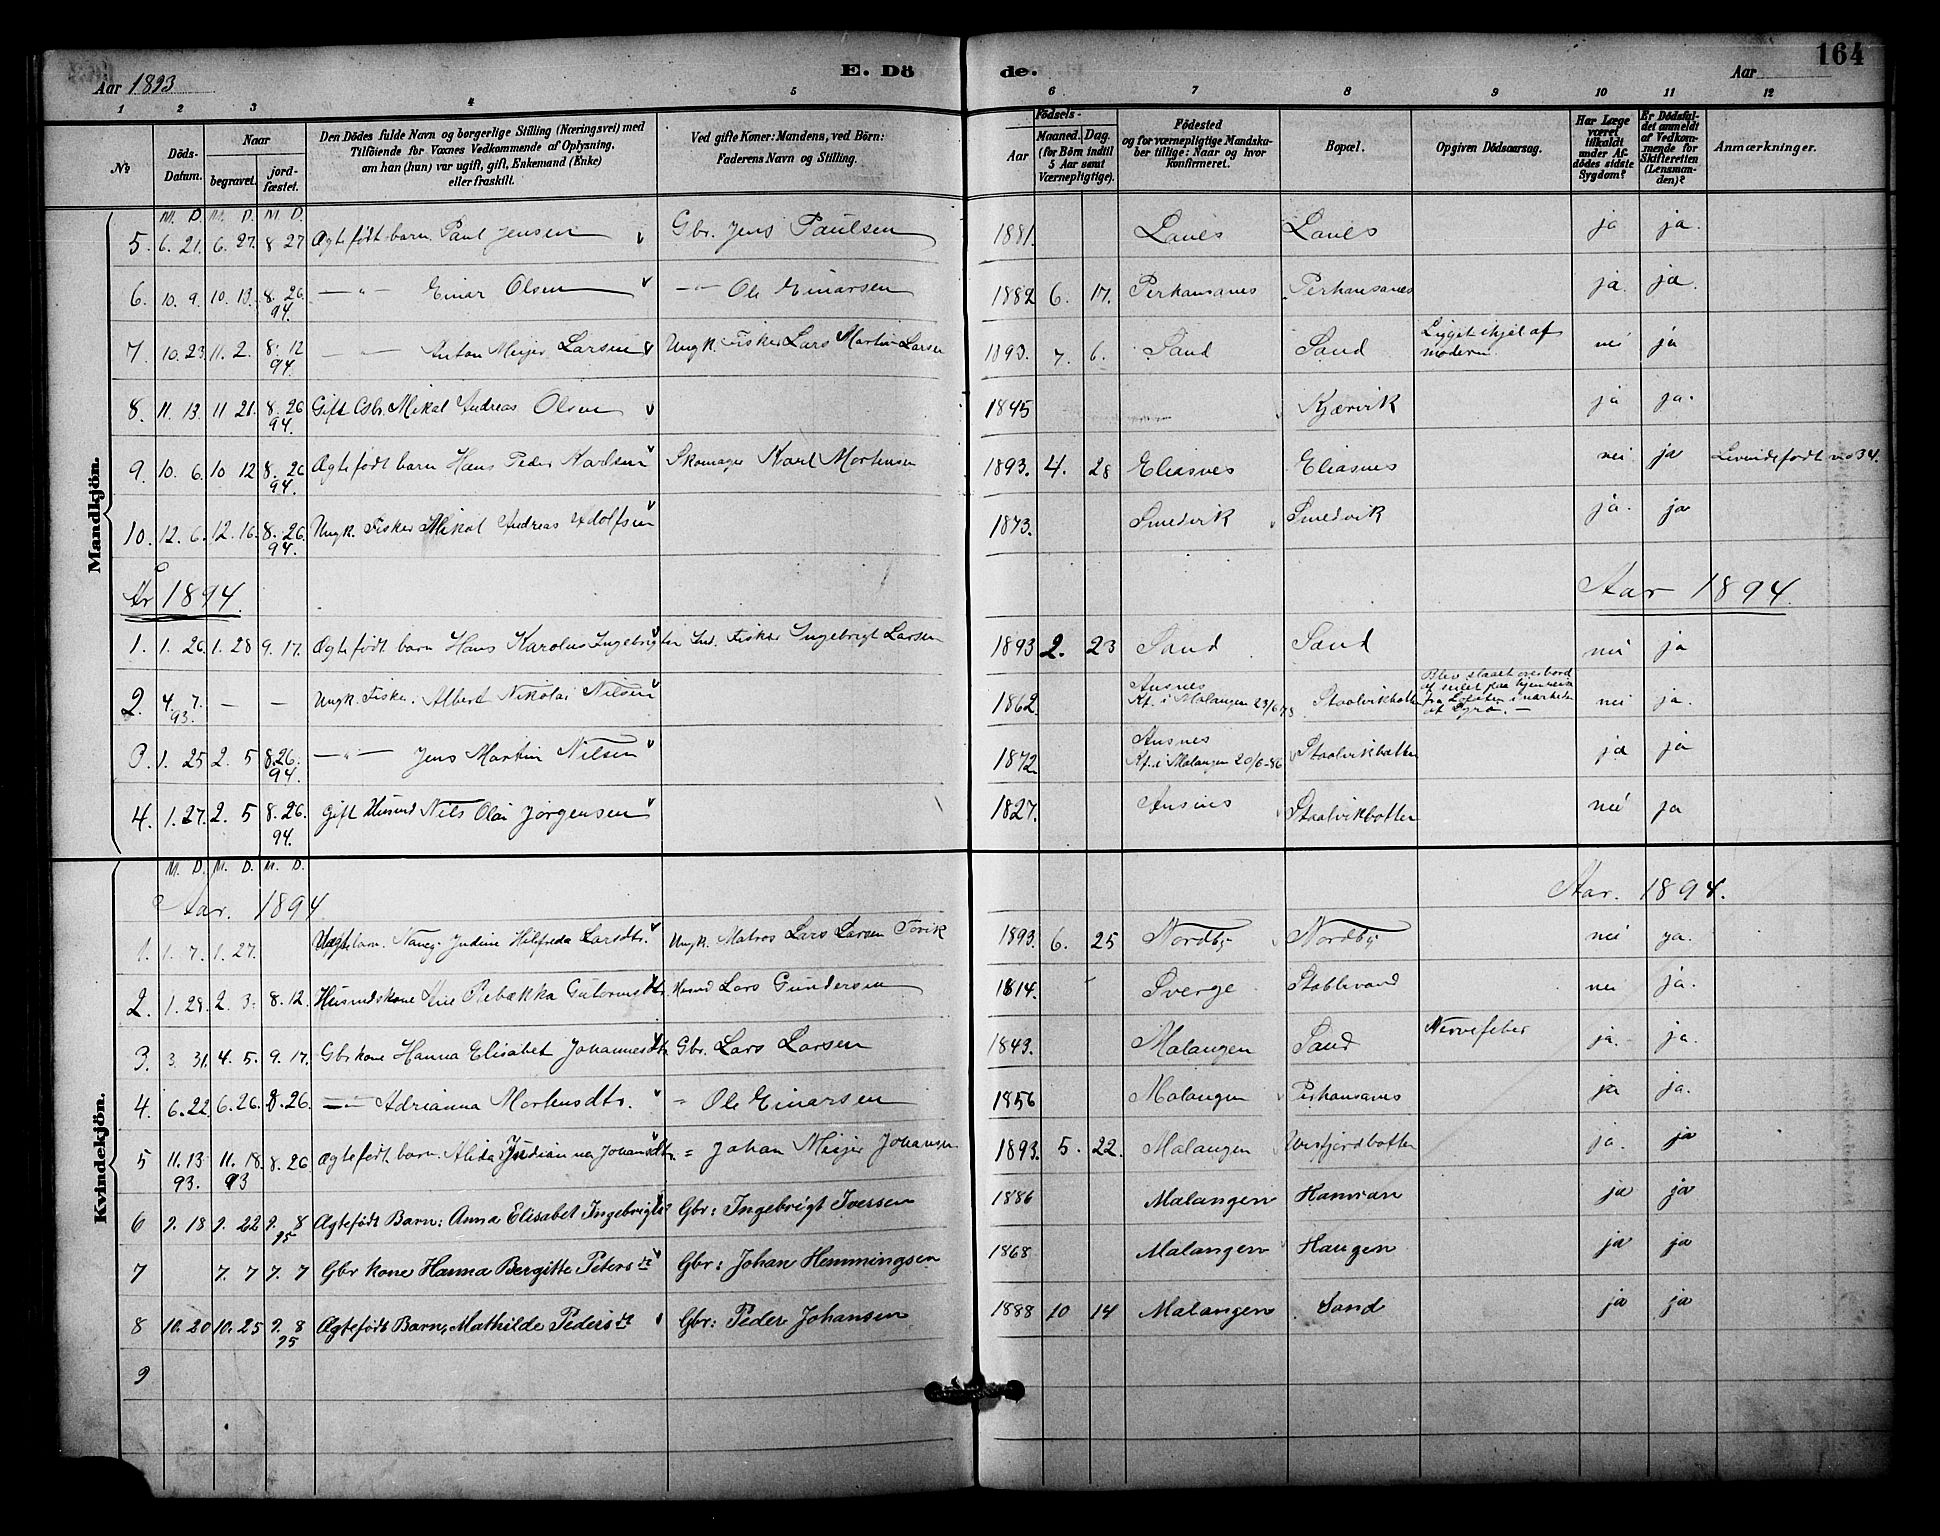 164
Aar 1893 E. Dö de. Aar
1 2 3 4 5 6 7 8 9 10 11 12
No Döds-Datum. Naar begravet. jord-fæstet. Den Dödes fulde Navn og borgerlige Stilling (Næringsvei) med Tilföiende for Voxnes Vedkommende af Oplysning. om han (hun) var ugift, gift, Enkemand (Enke) eller fraskilt. Ved gifte Koner: Mandens, ved Börn: Faderens Navn og Stilling. Födsels- Aar Maaned. Dag. (for Börn indtil 5 Aar samt Værnepligtige). Födested og for værnepligtige Mandskaber tillige: Naar og hvor konfirmeret. Bopæl. Opgiven Dödsaarsag. Har Læge været tilkaldt under Afdödes sidste Sygdom? Er Dödsfaldet anmeldt af Vedkommende for Skifteretten (Lensmanden)? Anmærkninger.
Mandkjön.
M. D. M. D. M. D.
5. 6. 21. 6. 27. 8 27 Ægtefödt barn Paul Jensen Gbr. Jens Paulsen 1881. Lanes Lanes ja ja.
6. 10. 9. 10. 13. 8. 26. 94. —"— Einar Olsen —"— Ole Einarsen 1882 6. 17. Perhansanes Perhansanes ja. ja.
7. 10. 23. 11. 2. 8. 12 94. —"— Anton Meijer Larsen Ungk. Fisker Lars Martin Larsen 1893. 7. 6. Sand Sand Ligget ihjel af moderen nei ja
8. 11. 13. 11 21. 8. 26 94. Gift Gbr. Mikal Andreas Olsen 1845 Kjærvik ja ja.
9. 10. 6. 10 12 8. 26 94. Ægtefödt barn Hans Peder Karlsen Skomager Karl Mortensen 1893. 4. 28 Eliasnes Eliasnes nei ja Levendefödt no 34.
10. 12. 6. 12. 16. 8. 26. 94. Ungk. Fisker Mikal Andreas Adolfsen 1873. Smedvik Smedvik ja. ja
År 1894. Aar 1894.
1. 1. 26. 1. 28 9. 17. Ægtefödt barn Hans Karolus Ingebrigtsen Ind. Fisker Ingebrigt Larsen 1893 2. 23 Sand Sand nei ja
2. 4. 7. 93. — — Ungk. Fisker. Albert Nikolai Nilsen 1862. Ansnes Kf. i Malangen 23/6 78 Staalvikbotten Blev slaaet overbord af seilet paa hjemreise fra Lofoten i nærheden af nei ja.
3. 1. 25 2. 5 8.26. 94. —"— Jens Martin Nilsen 1872 Ansnes Kf. i Malangen 20/6-86 Staalvikbotten ja ja
4. 1. 27. 2. 5 8. 26. 94. Gift Husmd Nils Olai Jörgensen 1827. Ansnes Staalvikbotten nei ja
Kvindekjön.
M. D. M. D. M. D.
Aar. 1894. Aar. 1894.
1. 1. 7. 1. 27. Uægte barn. Nancy Judine Hilfreda Larsdtr. Ungk. Matros Lars Larsen Torvik 1893. 6. 25 Nordby Nordby nei ja.
2. 1. 28. 2. 3. 8. 12. Husmdskone Ane Rebækka Guttormsdtr. Husmd Lars Gundersen 1814. Sverge Stablevand nei ja.
3. 3 31. 4. 5. 9. 17. Gbr kone Hanna Elisabet Johannesdtr. Gbr. Lars Larsen 1843. Malangen Sand Nervefeber ja. ja.
4. 6. 22. 6. 26. 8. 26. —"— Adrianna Mortensdtr. " Ole Einarsen 1856 Malangen Perhansanes ja ja.
5 11. 13. 93. 11. 18. 93 8. 26 Ægtefödt barn. Alida Judianna Johansdtr. = Johan Meijer Johansen 1893. 5. 22. Malangen Nordfjordbotten ja. ja
6 7. 18 7. 22 7. 8 95 Ægtefödt Barn: Anna Elisabet Ingebrigtsd Gbr: Ingebrigt Iversen 1886 Malangen Hamran ja ja
7 7. 7 7. 7 Gbr kone Hanna Bergitte Petersdtr Gbr: Johan Hemmingsen 1868 Malangen Haugen ja ja
8 10. 20 10. 25 7. 8 95 Ægtefödt Barn, Mathilde Pedersdtr Gbr: Peder Johansen 1888 10 14 Malangen Sand ja ja
9